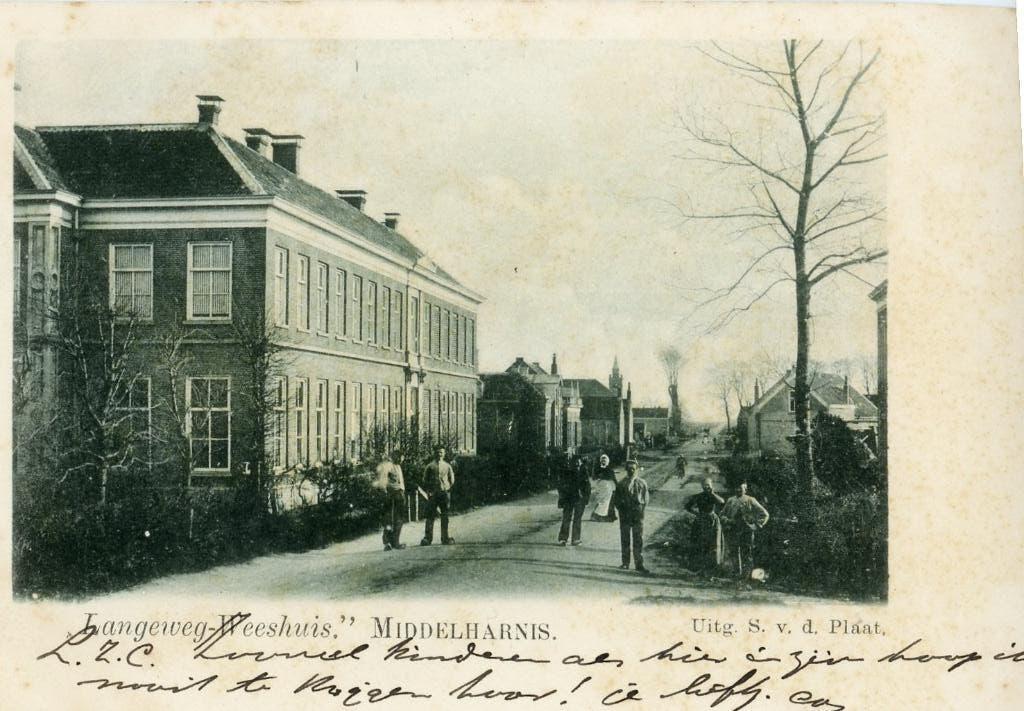 Langeweg-Weeshuis," MIDDELHARNIS.
Uitg. S. v. d. Plaat.
L.Z.C. Zooveel kinderen als hier in zijn hoop ik
nooit te krijgen hoor! je liefh.